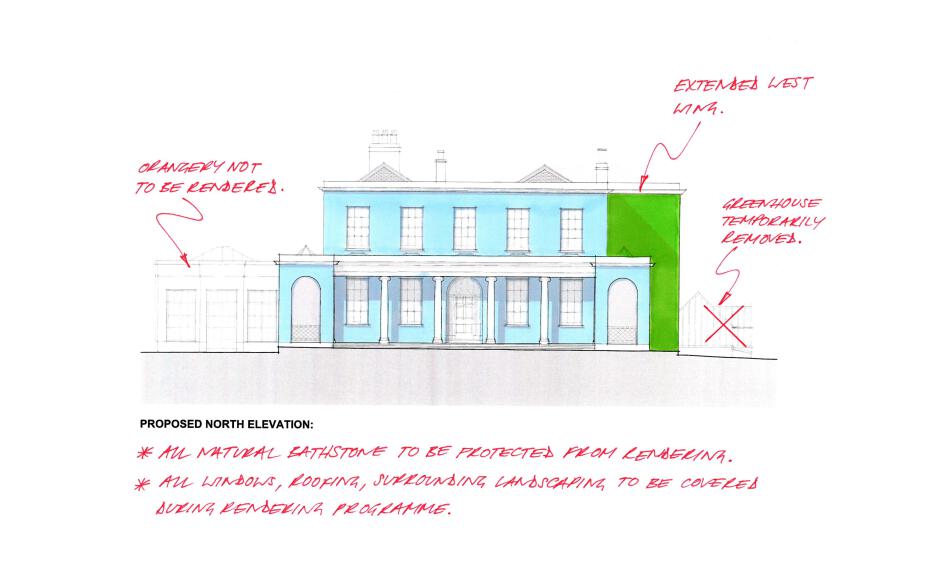 EXTENDED WEST
WING.
ORANGERY NOT
TO BE RENDERED.
GREENHOUSE
TEMPORARILY
REMOVED.
PROPOSED NORTH ELEVATION:
* ALL NATURAL BATHSTONE TO BE PROTECTED FROM RENDERING.
* ALL WINDOWS, ROOFING, SURROUNDING LANDSCAPING TO BE COVERED
DURING RENDERING PROGRAMME.